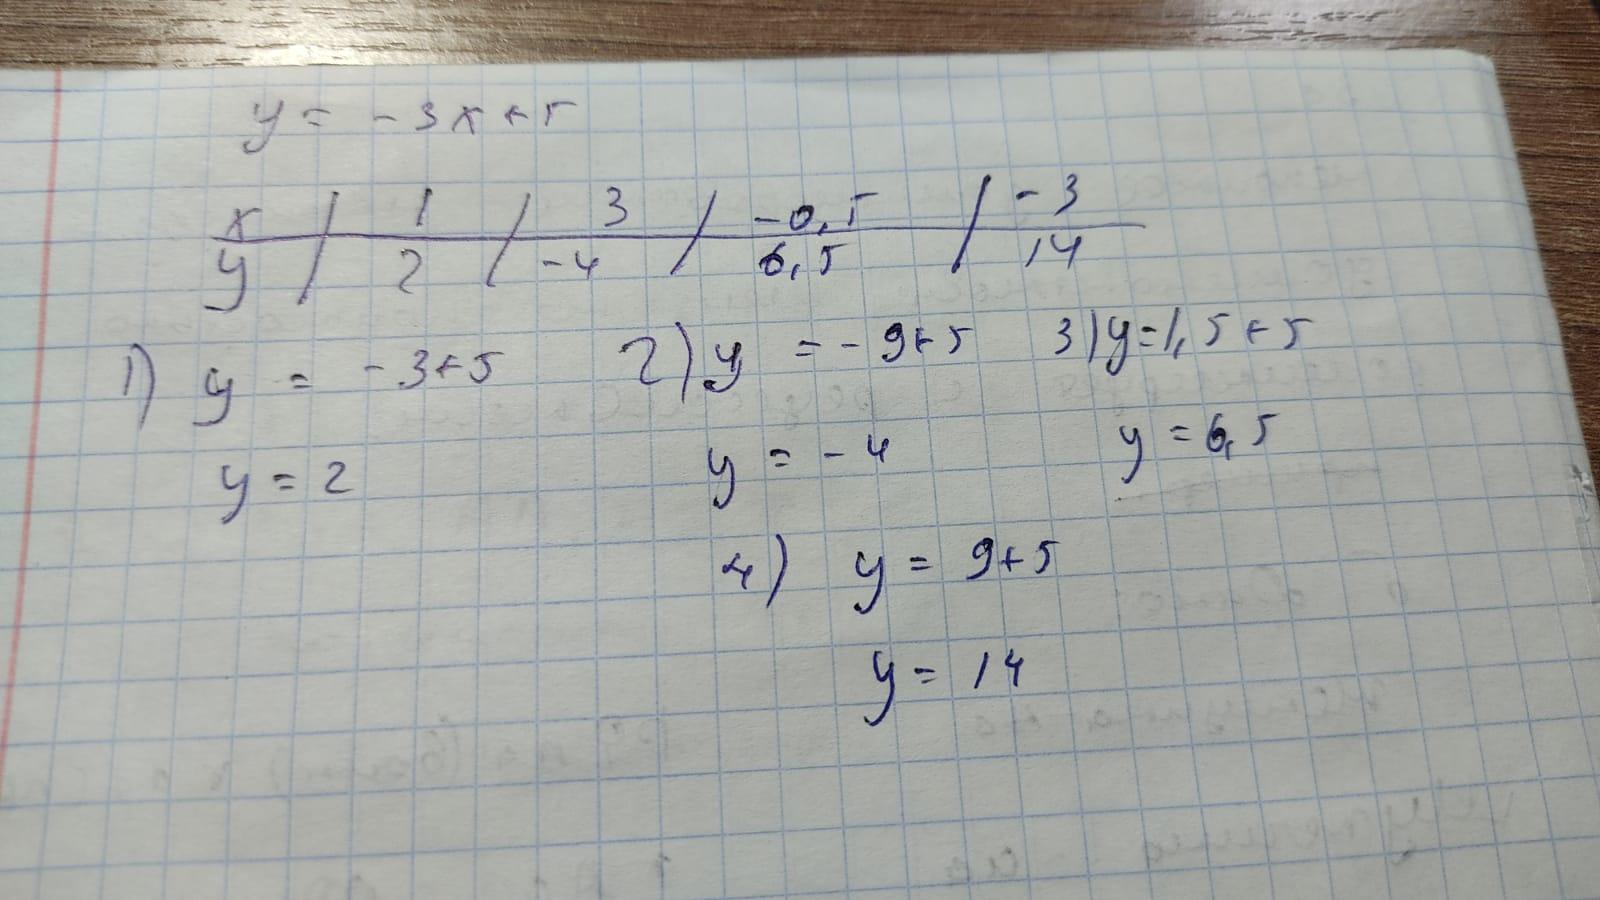 y = -3x+5
x / 1 / 3 / -0,5 / -3
y / 2 / -4 / 6,5 / 14
1) y = -3+5 2) y = -9+5 3) y=1,5+5
y = 2 y = -4 y = 6,5
4) y = 9+5
y = 14